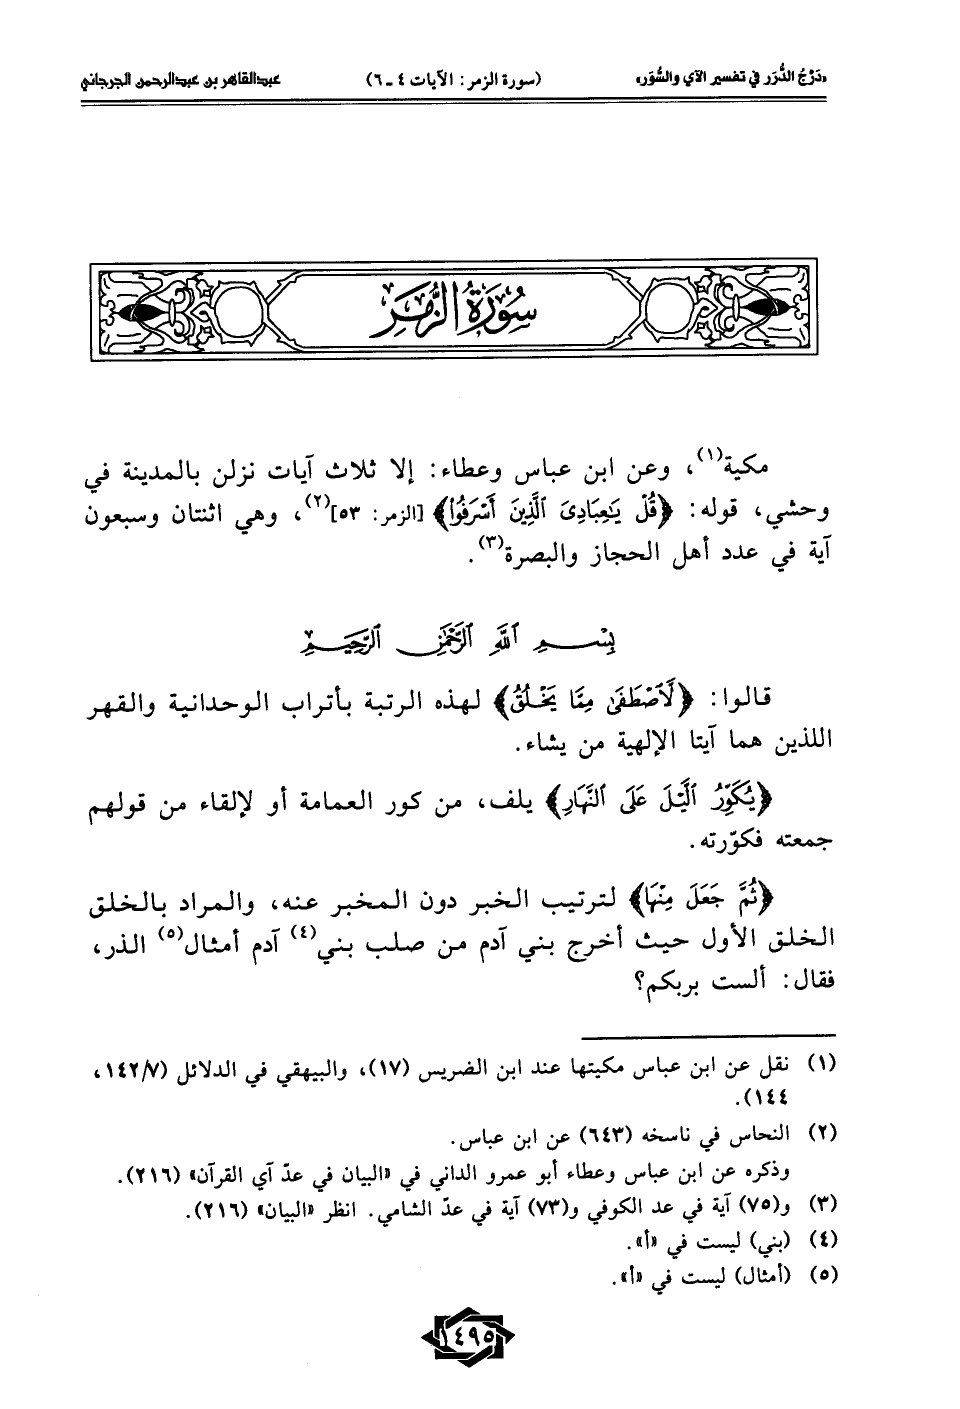 «دَرْجُ الدُّرَر في تفسير الآي والسُّوَر» (سورة الزمر: الآيات ٤ - ٦) عبدالقاهر بن عبدالرحمن الجرجاني
سُورَةُ الزُّمَرِ
مكية(١)، وعن ابن عباس وعطاء: إلا ثلاث آيات نزلن بالمدينة في
وحشي، قوله: ﴿قُلْ يَٰعِبَادِىَ ٱلَّذِينَ أَسْرَفُوا۟﴾ [الزمر: ٥٣](٢)، وهي اثنتان وسبعون
آية في عدد أهل الحجاز والبصرة(٣).
بِسْمِ ٱللَّهِ ٱلرَّحْمَٰنِ ٱلرَّحِيمِ
قالوا: ﴿لَّٱصْطَفَىٰ مِمَّا يَخْلُقُ﴾ لهذه الرتبة بأتراب الوحدانية والقهر
اللذين هما آيتا الإلهية من يشاء.
﴿يُكَوِّرُ ٱلَّيْلَ عَلَى ٱلنَّهَارِ﴾ يلف، من كور العمامة أو لإلقاء من قولهم
جمعته فكوّرته.
﴿ثُمَّ جَعَلَ مِنْهَا﴾ لترتيب الخبر دون المخبر عنه، والمراد بالخلق
الخلق الأول حيث أخرج بني آدم من صلب بني(٤) آدم أمثال(٥) الذر،
فقال: ألست بربكم؟
(١) نقل عن ابن عباس مكيتها عند ابن الضريس (١٧)، والبيهقي في الدلائل (١٤٢/٧،
١٤٤).
(٢) النحاس في ناسخه (٦٤٣) عن ابن عباس.
وذكره عن ابن عباس وعطاء أبو عمرو الداني في «البيان في عدّ آي القرآن» (٢١٦).
(٣) و(٧٥) آية في عد الكوفي و(٧٣) آية في عدّ الشامي. انظر «البيان» (٢١٦).
(٤) (بني) ليست في «أ».
(٥) (أمثال) ليست في «أ».
١٤٩٥